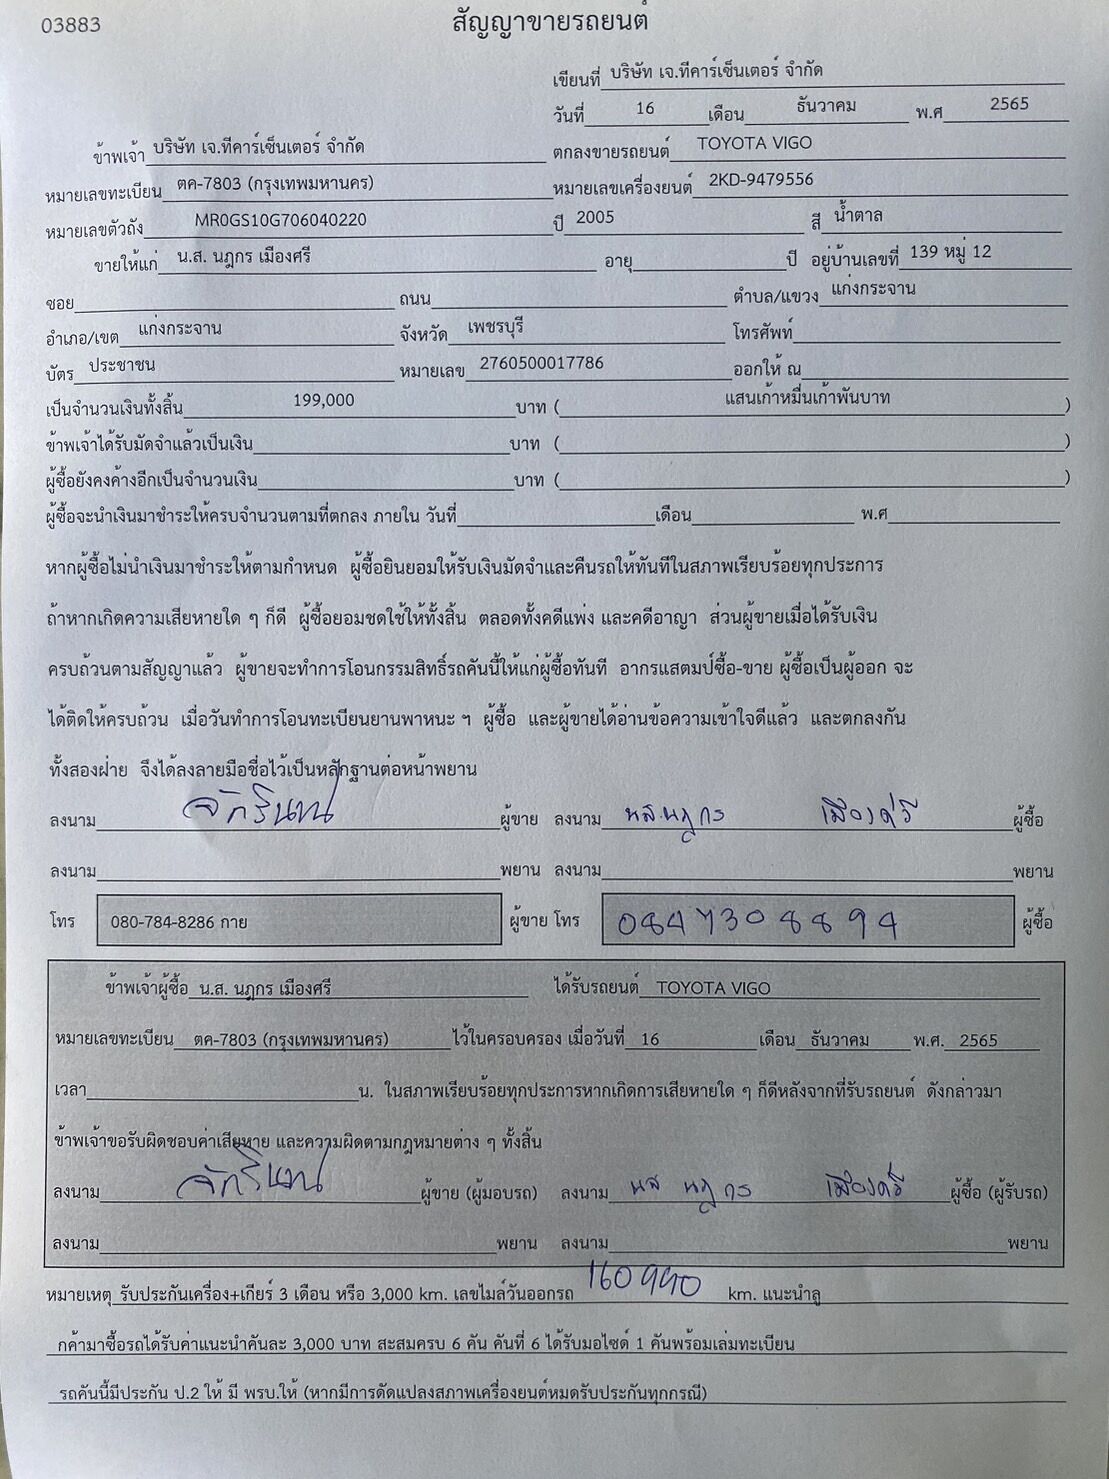 03883
สัญญาขายรถยนต์
เขียนที่ บริษัท เจ.ทีคาร์เซ็นเตอร์ จำกัด
วันที่ 16 เดือน ธันวาคม พ.ศ 2565
ข้าพเจ้า บริษัท เจ.ทีคาร์เซ็นเตอร์ จำกัด ตกลงขายรถยนต์ TOYOTA VIGO
หมายเลขทะเบียน ตค-7803 (กรุงเทพมหานคร) หมายเลขเครื่องยนต์ 2KD-9479556
หมายเลขตัวถัง MR0GS10G706040220 ปี 2005 สี น้ำตาล
ขายให้แก่ น.ส. นฎกร เมืองศรี อายุ ปี อยู่บ้านเลขที่ 139 หมู่ 12
ซอย ถนน ตำบล/แขวง แก่งกระจาน
อำเภอ/เขต แก่งกระจาน จังหวัด เพชรบุรี โทรศัพท์
บัตร ประชาชน หมายเลข 2760500017786 ออกให้ ณ
เป็นจำนวนเงินทั้งสิ้น 199,000 บาท ( แสนเก้าหมื่นเก้าพันบาท )
ข้าพเจ้าได้รับมัดจำแล้วเป็นเงิน บาท ( )
ผู้ซื้อยังคงค้างอีกเป็นจำนวนเงิน บาท ( )
ผู้ซื้อจะนำเงินมาชำระให้ครบจำนวนตามที่ตกลง ภายใน วันที่ เดือน พ.ศ
หากผู้ซื้อไม่นำเงินมาชำระให้ตามกำหนด ผู้ซื้อยินยอมให้รับเงินมัดจำและคืนรถให้ทันทีในสภาพเรียบร้อยทุกประการ
ถ้าหากเกิดความเสียหายใด ๆ ก็ดี ผู้ซื้อยอมชดใช้ให้ทั้งสิ้น ตลอดทั้งคดีแพ่ง และคดีอาญา ส่วนผู้ขายเมื่อได้รับเงิน
ครบถ้วนตามสัญญาแล้ว ผู้ขายจะทำการโอนกรรมสิทธิ์รถคันนี้ให้แก่ผู้ซื้อทันที อากรแสตมป์ซื้อ-ขาย ผู้ซื้อเป็นผู้ออก จะ
ได้ติดให้ครบถ้วน เมื่อวันทำการโอนทะเบียนยานพาหนะ ฯ ผู้ซื้อ และผู้ขายได้อ่านข้อความเข้าใจดีแล้ว และตกลงกัน
ทั้งสองฝ่าย จึงได้ลงลายมือชื่อไว้เป็นหลักฐานต่อหน้าพยาน
ลงนาม จักรินทน์ ผู้ขาย ลงนาม นส.นฎกร เมืองศรี ผู้ซื้อ
ลงนาม พยาน ลงนาม พยาน
โทร 080-784-8286 กาย ผู้ขาย โทร 0847308894 ผู้ซื้อ
ข้าพเจ้าผู้ซื้อ น.ส. นฎกร เมืองศรี ได้รับรถยนต์ TOYOTA VIGO
หมายเลขทะเบียน ตค-7803 (กรุงเทพมหานคร) ไว้ในครอบครอง เมื่อวันที่ 16 เดือน ธันวาคม พ.ศ. 2565
เวลา น. ในสภาพเรียบร้อยทุกประการหากเกิดการเสียหายใด ๆ ก็ดีหลังจากที่รับรถยนต์ ดังกล่าวมา
ข้าพเจ้าขอรับผิดชอบค่าเสียหาย และความผิดตามกฎหมายต่าง ๆ ทั้งสิ้น
ลงนาม จักรินทน์ ผู้ขาย (ผู้มอบรถ) ลงนาม นส นฎกร เมืองศรี ผู้ซื้อ (ผู้รับรถ)
ลงนาม พยาน ลงนาม พยาน
หมายเหตุ รับประกันเครื่อง+เกียร์ 3 เดือน หรือ 3,000 km. เลขไมล์วันออกรถ 160990 km. แนะนำลู
กค้ามาซื้อรถได้รับค่าแนะนำคันละ 3,000 บาท สะสมครบ 6 คัน คันที่ 6 ได้รับมอไซด์ 1 คันพร้อมเล่มทะเบียน
รถคันนี้มีประกัน ป.2 ให้ มี พรบ.ให้ (หากมีการดัดแปลงสภาพเครื่องยนต์หมดรับประกันทุกกรณี)